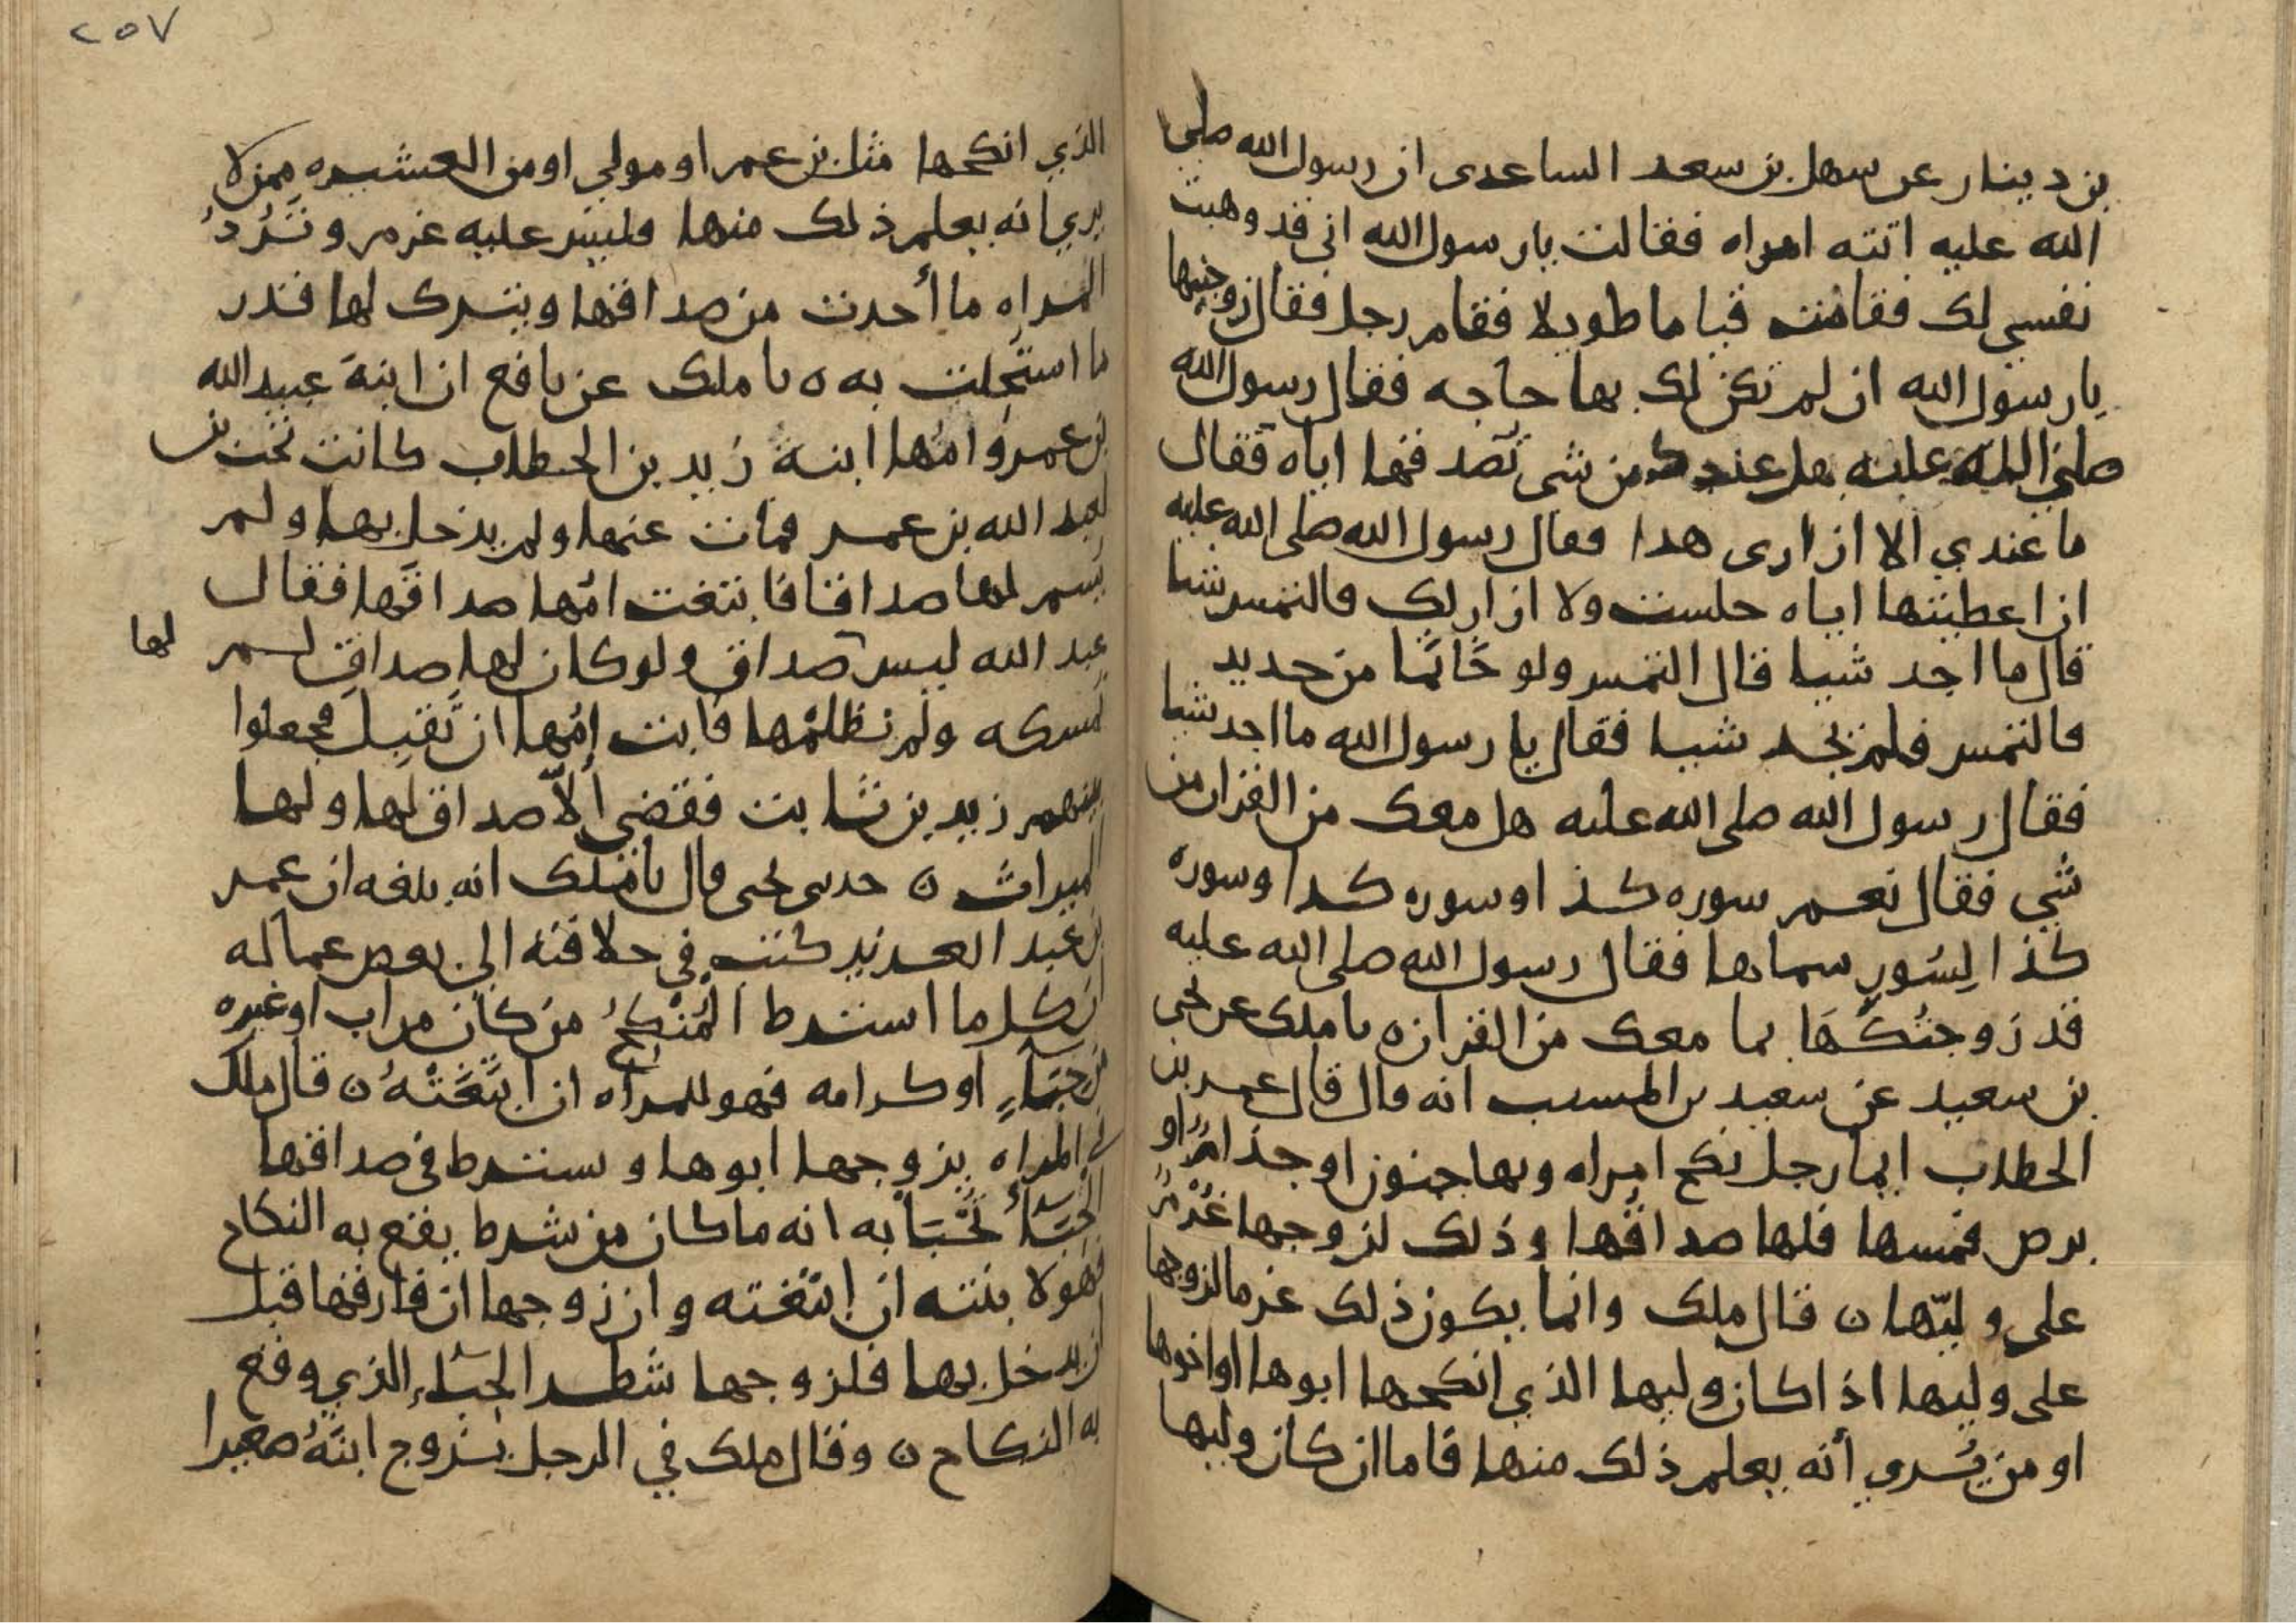 بن دينار عن سهل بن سعد الساعدى ان رسول الله صلى
الله عليه اتته امراه فقالت يا رسول الله انى قد وهبت
نفسي لك فقامت قياما طويلا فقام رجل فقال زوجنيها
يا رسول الله ان لم تكن لك بها حاجه فقال رسول الله
صلى الله عليه هل عندك من شى تصدقها اياه فقال
ما عندي الا ازارى هدا فقال رسول الله صلى الله عليه
ان اعطيتها اياه جلست ولا ازار لك فالتمس شيا
قال ما اجد شيا قال التمس ولو خاتمًا من حديد
فالتمس فلم يجد شيا فقال يا رسول الله ما اجد شيا
فقال رسول الله صلى الله عليه هل معك من القران من
شي فقال نعم سوره كذا وسوره كدا وسوره
كذا لِسُورٍ سماها فقال رسول الله صلى الله عليه
قد زوجتُكَهَا بما معك من القران ٥ نا ملك عن يحيى
بن سعيد عن سعيد بن المسيب انه قال قال عمر بن
الخطاب ايما رجل نكح امراه وبها جنون او جذامٌ او
برص فمسها فلها صداقُها وذلك لزوجها غُرْمٌ
على وليّها ن قال ملك وانما يكون ذلك غرما لزوجها
على وليها اذا كان وليها الذي انكحها ابوها او اخوها
او من يُرى أنه يعلم ذلك منها فاما ان كان وليها
٢٥٧
الذي انكحها مثل بن عمر او مولي او من العشيره ممن لا
يري انه يعلم ذلك منها فليس عليه غرم وتَرُدُّ
المراه ما أخذت من صداقها ويترك لها قدر
ما استحلت به ٥ نا ملك عن نافع ان ابنةَ عبيد الله
بن عمر وامُها ابنة زيد بن الخطاب كانت تحت بن
لعبد الله بن عمر فمات عنها ولم يدخل بها ولم
يسم لها صداقا فابتغت امّها صداقَها فقال
عبد الله ليس صداق ولو كان لها صداق لم لها
نمسكه ولم نظلمْها فابت امُها ان تَقبل فجعلوا
بينهم زيد بن ثابت فقضى ألاّ صداق لها ولها
الميراث ن حدثنى يحيى قال نا ملك انه بلغه ان عمر
بن عبد العزيز كتب في خلافته الي بعض عماله
ان كل ما اشترط المُنْكِحُ من كان من اب او غيره
من حِبَاءٍ او كرامه فهو للمراه ان ابتَغَتْهُ ن قال ملك
في المراه يزوجها ابوها ويشترط في صداقها
الحِبَاءُ يُحْبَأُ به انه ما كان من شرط يقع به النكاح
فهو لابنته ان ابتغته وان زوجها ان فارقها قبل
ان يدخل بها فلزوجها شطر الحِبَاءِ الذي وقع
به النكاح ن وقال ملك في الرجل يزوج ابنَهُ صغيرا